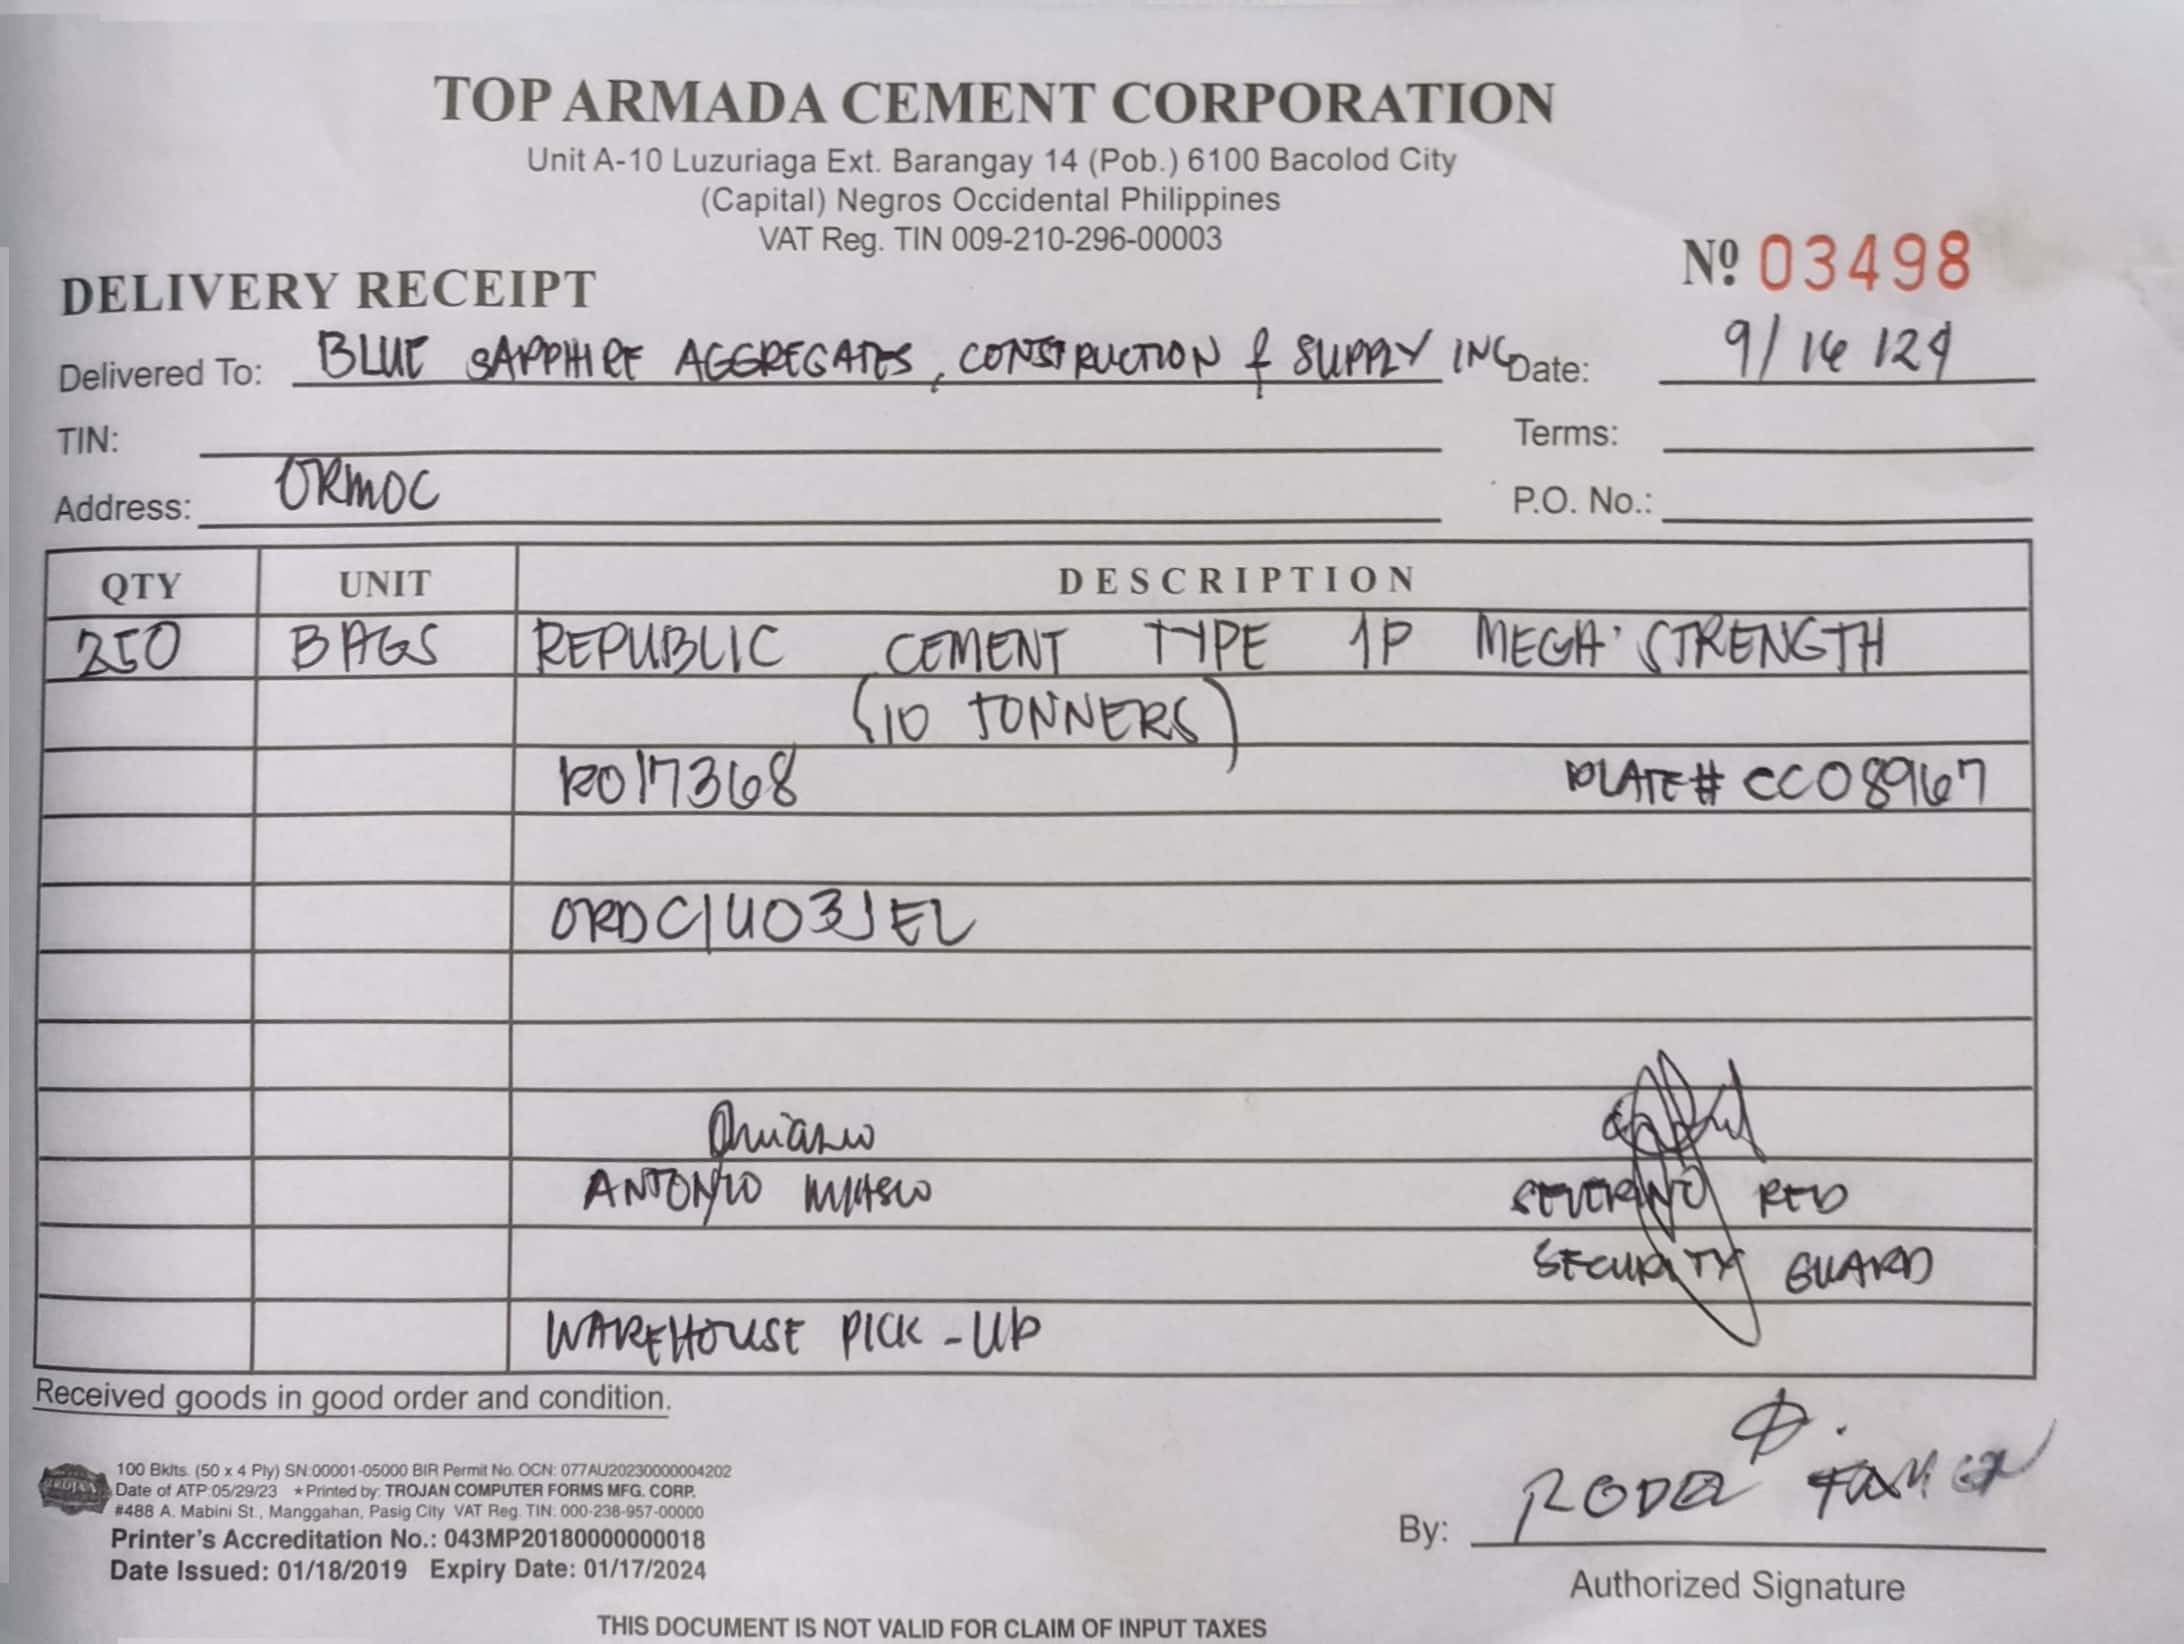 TOP ARMADA CEMENT CORPORATION
Unit A-10 Luzuriaga Ext. Barangay 14 (Pob.) 6100 Bacolod City
(Capital) Negros Occidental Philippines
VAT Reg. TIN 009-210-296-00003
Nº 03498
DELIVERY RECEIPT
Delivered To: BLUE SAPPHIRE AGGREGATES, CONSTRUCTION & SUPPLY INC Date: 9/16/24
TIN: Terms:
Address: ORMOC P.O. No.:
QTY UNIT DESCRIPTION
250 BAGS REPUBLIC CEMENT TYPE 1P MEGA STRENGTH
(10 TONNERS)
RO17368 PLATE# CCO8967
ORDC1403JEL
ANTONIO SEVERINO RED
SECURITY GUARD
WAREHOUSE PICK-UP
Received goods in good order and condition.
TROJAN
100 Bklts. (50 x 4 Ply) SN:00001-05000 BIR Permit No. OCN: 077AU20230000004202
Date of ATP:05/29/23 *Printed by: TROJAN COMPUTER FORMS MFG. CORP.
#488 A. Mabini St., Manggahan, Pasig City VAT Reg. TIN: 000-238-957-00000
Printer's Accreditation No.: 043MP20180000000018
Date Issued: 01/18/2019 Expiry Date: 01/17/2024
By:
Authorized Signature
THIS DOCUMENT IS NOT VALID FOR CLAIM OF INPUT TAXES